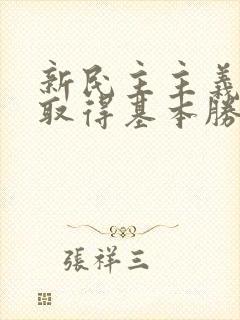 新民主主義
取得基本勝
張祥三